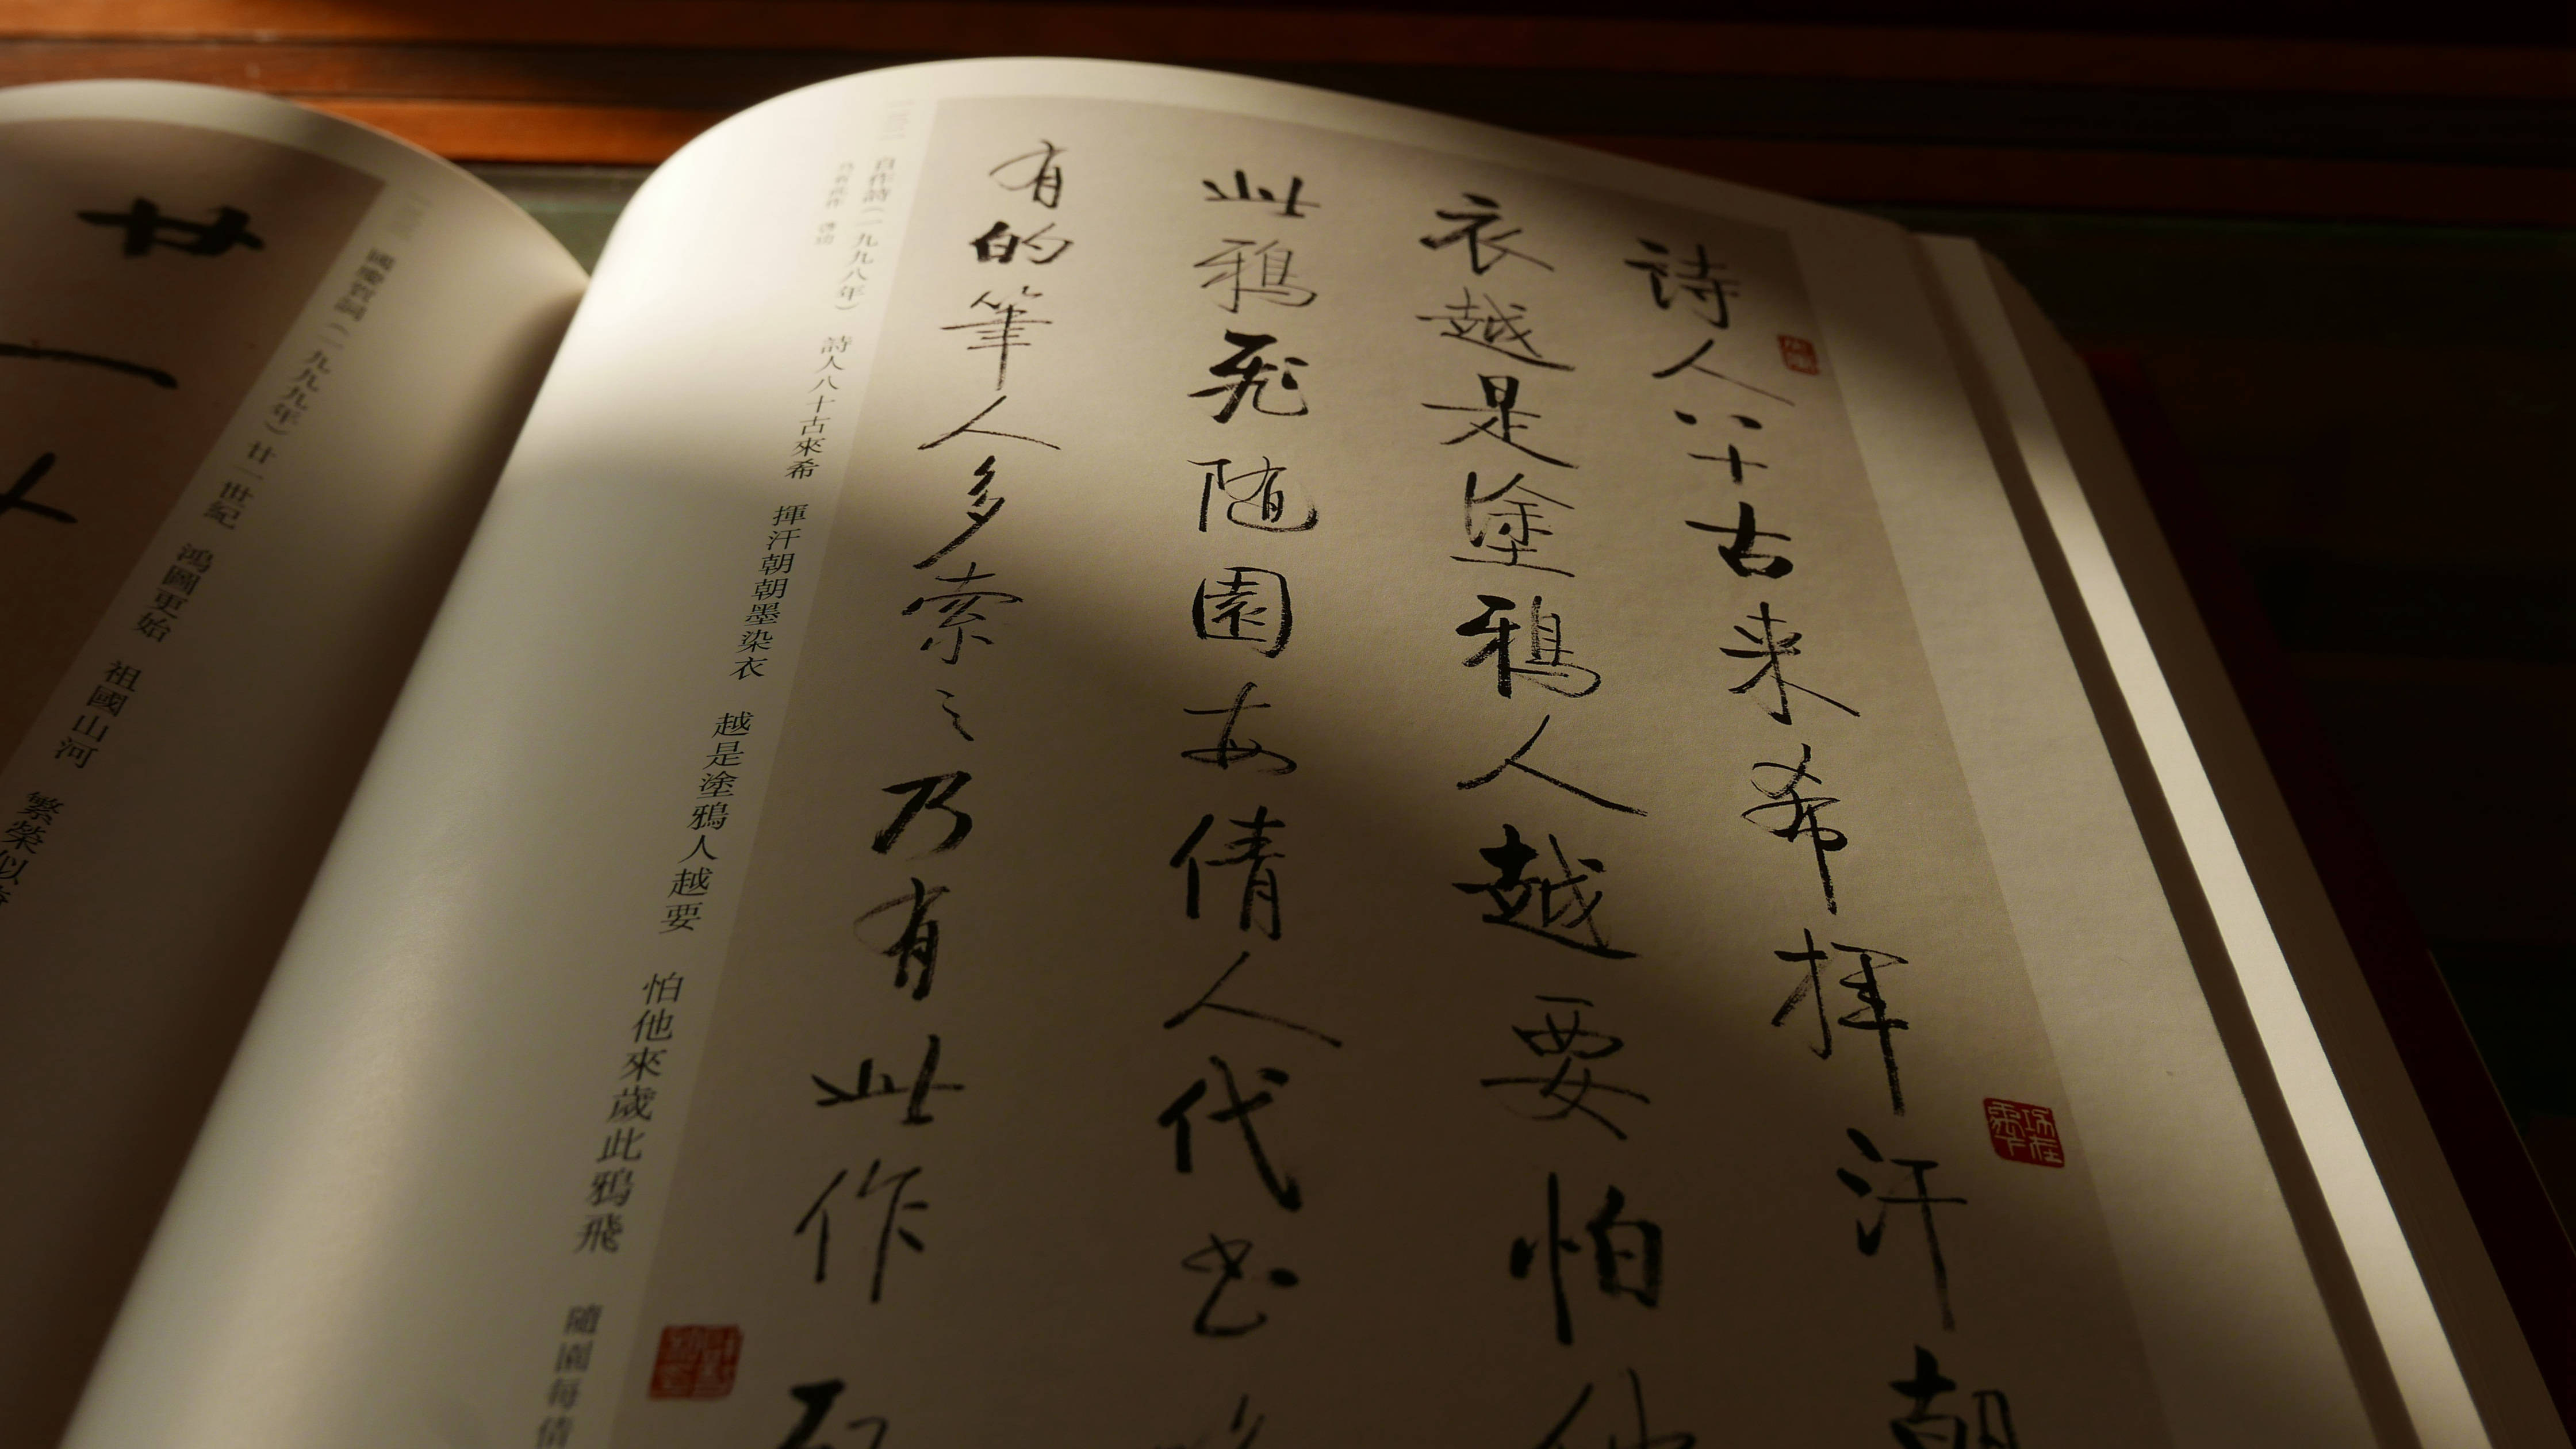 詩人八十古来希揮汗朝
衣越是塗鴉人越要怕他
此鴉飛随園每倩人代书
有的筆人多索之乃有此作
自作詩（一九九八年） 詩人八十古來希 揮汗朝朝墨染衣 越是塗鴉人越要 怕他來歲此鴉飛 隨園每倩
國慶賀詞（一九九九年） 廿一世紀 鴻圖更始 祖國山河 繁榮似
廿一